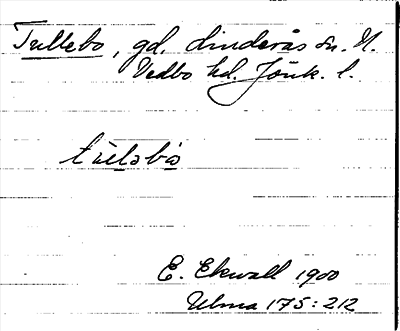 Tullebo, gd. Linderås sn. N.
Vedbo hd. Jönk. l.
tùlabò
E. Ekwall 1900
Ulma 175:212